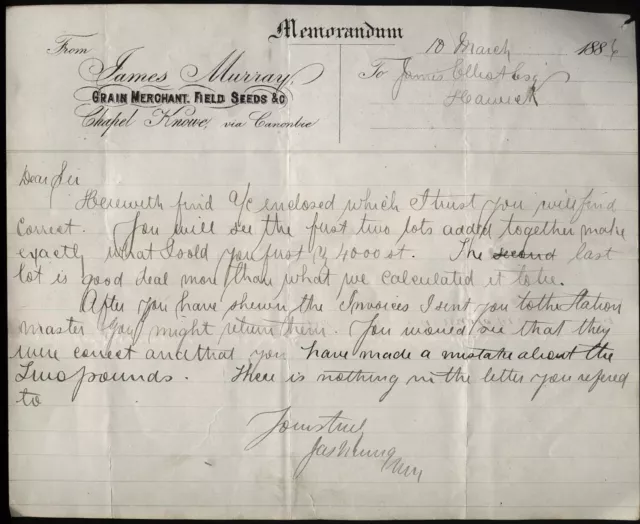 Memorandum
From
10 March 1886
James Murray,
GRAIN MERCHANT. FIELD SEEDS &C
Chapel Knowe, via Canonbie
To James Elliot Esq
Hawick
Dear Sir
Herewith find a/c enclosed which I trust you will find
correct. You will see the first two lots added together make
exactly what I sold you first 4000 st. The second last
lot is good deal more than what we calculated it to be.
After you have shewn the Invoices I sent you to the Station
master you might return them. You would see that they
were correct and that you have made a mistake about the
Two pounds. There is nothing in the letter you refered
to
Yours truly
Jas Murray